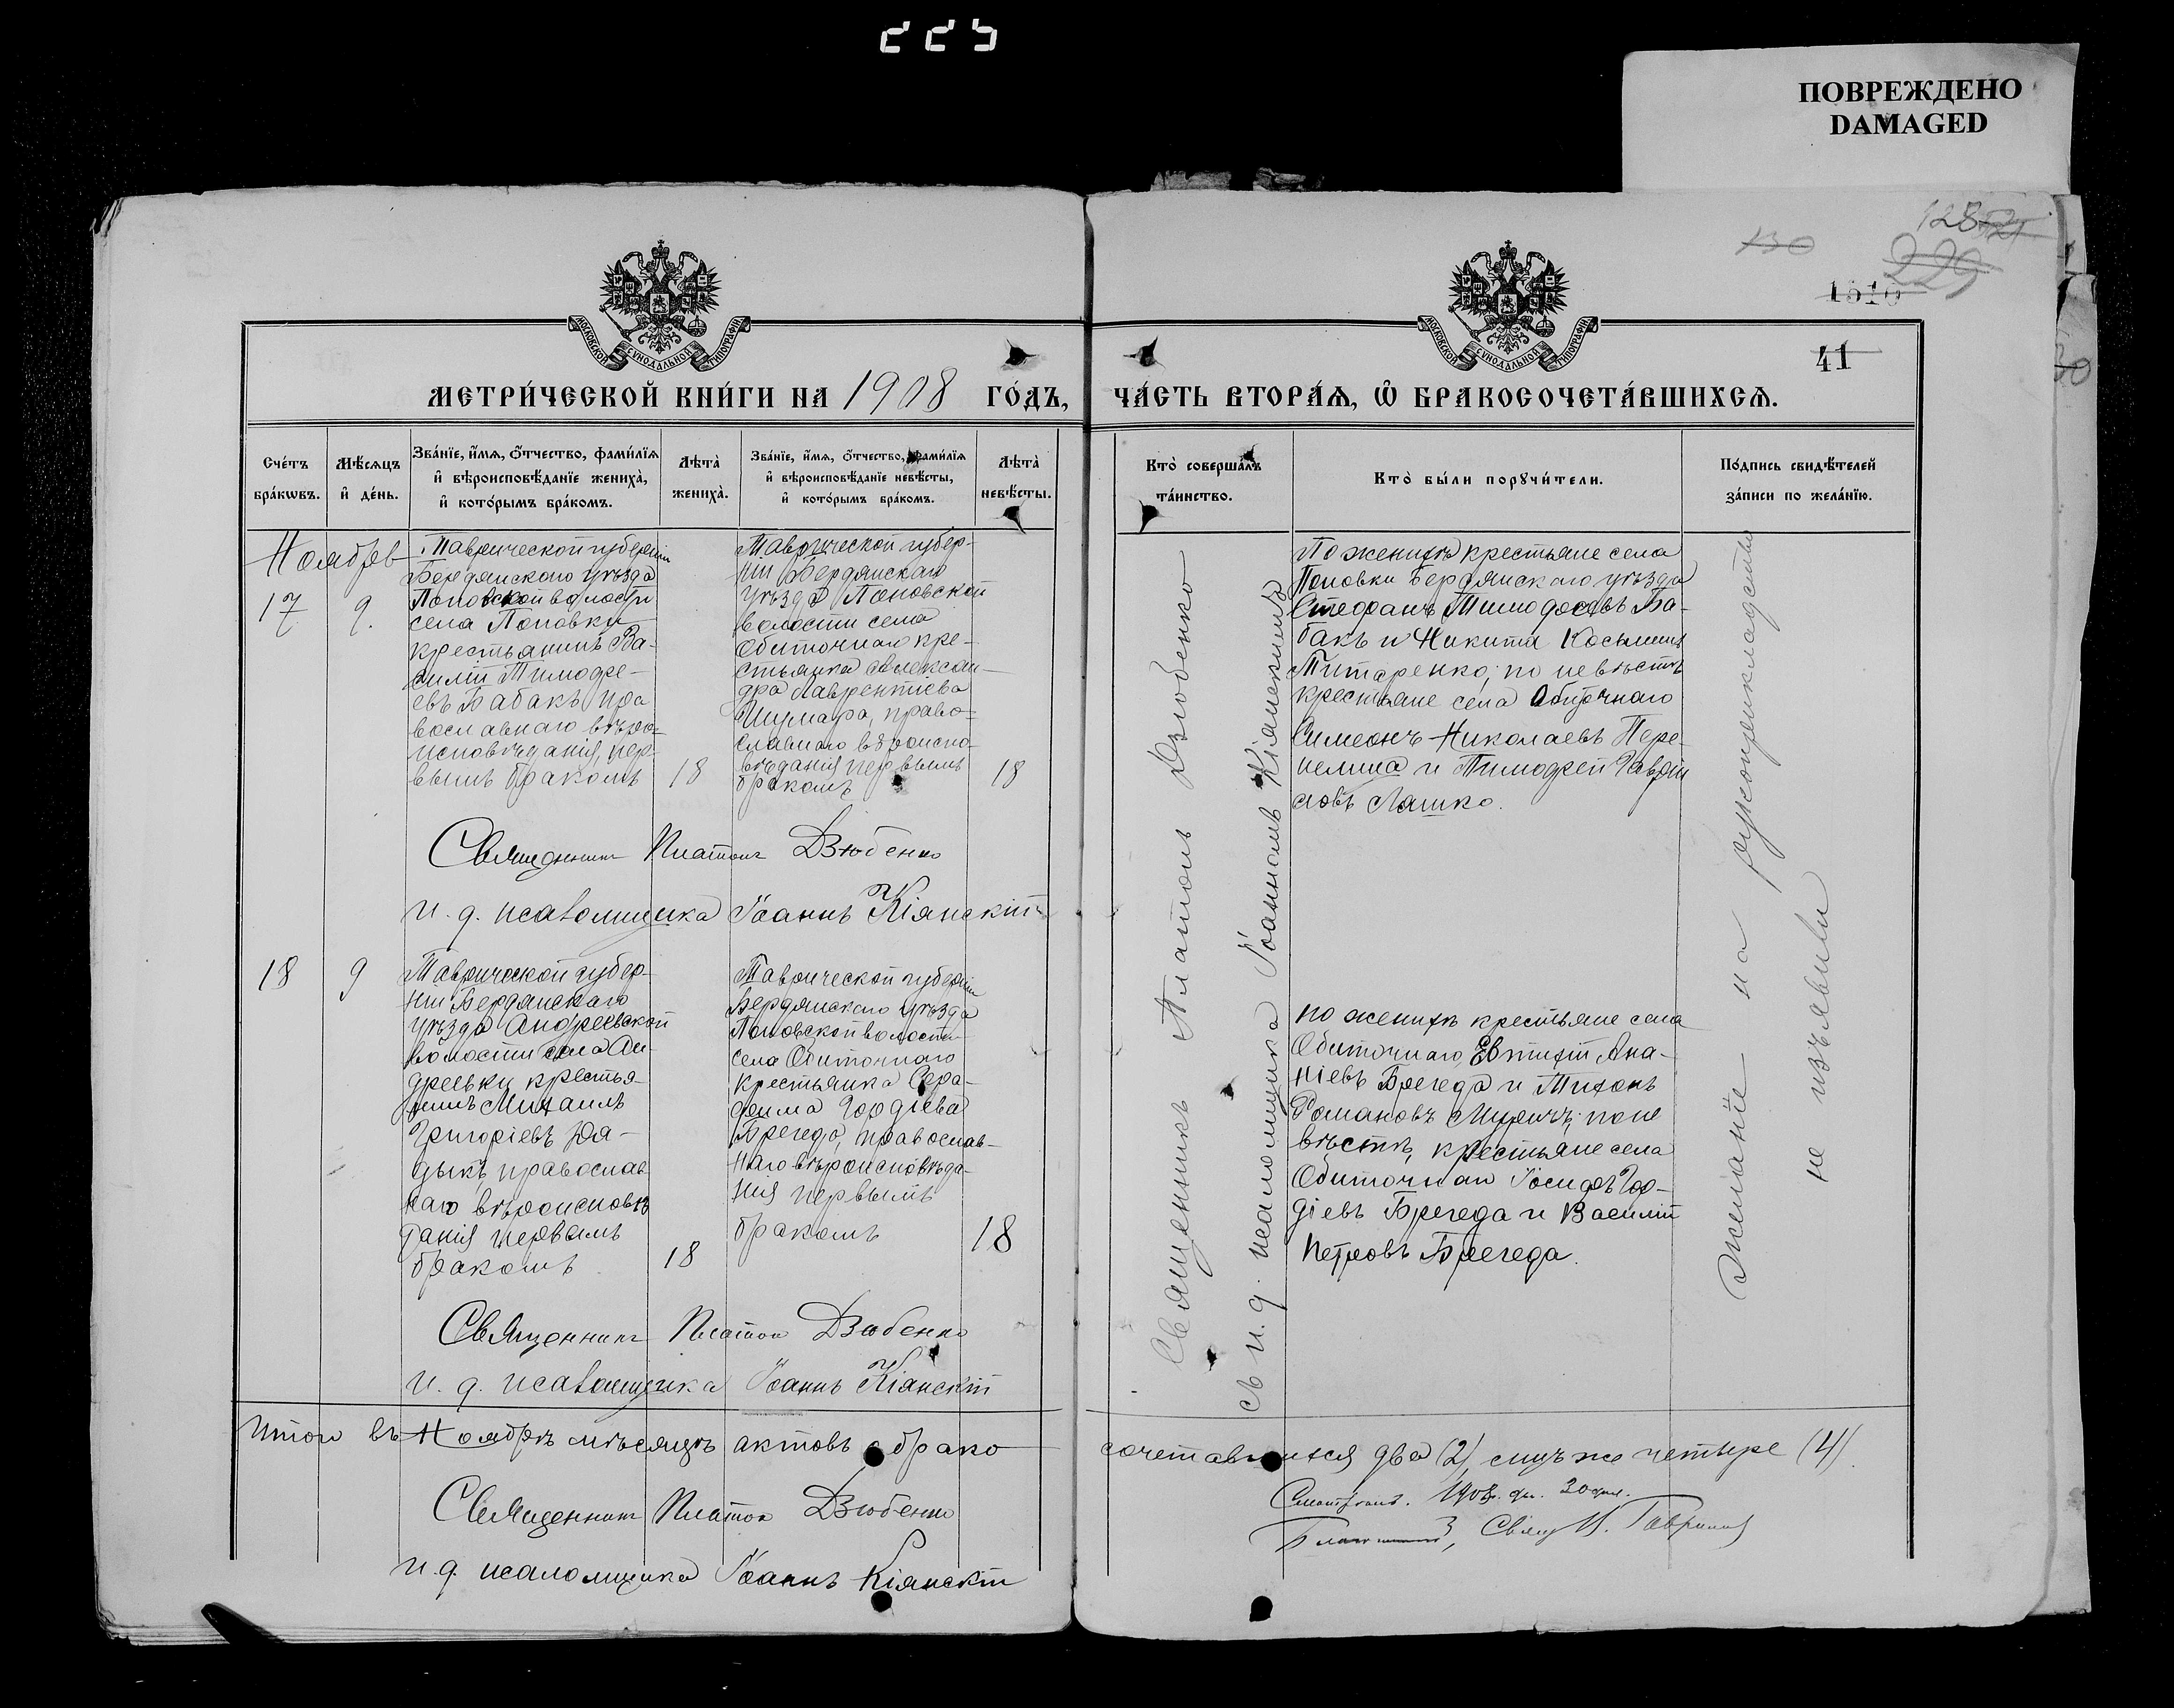 225
ПОВРЕЖДЕНО
DAMAGED
128
130
229
1510
41
МОСКОВСКОЙ СѴНОДАЛЬНОЙ ТИПОГРАФІИ
МОСКОВСКОЙ СѴНОДАЛЬНОЙ ТИПОГРАФІИ
МЕТРИ́ЧЕСКОЙ КНИ́ГИ НА 1908 ГО́ДЪ,
ЧА́СТЬ ВТОРА́Ѧ, Ѡ҆ БРАКОСОЧЕТА́ВШИХСѦ.
Сче́тъ
бра́кѡвъ.
Мѣ́сѧцъ
и҆ де́нь.
Зва́нїе, и҆́мѧ, ѻ҆́тчество, фами́лїѧ
и҆ вѣроисповѣ́данїе жениха̀,
и҆ кото́рымъ бра́комъ.
Лѣта̀
жениха̀.
Зва́нїе, и҆́мѧ, ѻ҆́тчество, фами́лїѧ
и҆ вѣроисповѣ́данїе невѣ́сты,
и҆ кото́рымъ бра́комъ.
Лѣта̀
невѣ́сты.
Кто̀ соверша́лъ
та́инство.
Кто̀ бы́ли порꙋчи́тели.
По́дпись свидѣ́телей
за́писи по жела́нїю.
Ноябрь
17
9.
Таврической губерніи
Бердянскаго уѣзда
Поповской волости
села Поповки
крестьянинъ Ва-
силій Тимофе-
евъ Бабакъ, пра
вославнаго вѣро-
исповѣданія, пер-
вымъ бракомъ
18
Таврической губер-
ніи Бердянскаго
уѣзда Поповской
волости села
Обиточнаго кре-
стьянка Алексан-
дра Лаврентіева
Шумара, право-
славнаго вѣроиспо-
вѣданія первымъ
бракомъ
18
По женихѣ крестьяне села
Поповки Бердянскаго уѣзда
Стефанъ Тимофеевъ Ба-
бакъ и Никита Косьминъ
Титаренко; по невѣстѣ
крестьяне села Обиточнаго
Симеонъ Николаевъ Пере-
пелица и Тимофей Гаврiи
ловъ Ляшко.
Священникъ Платонъ Дзюбенко
И. д. псаломщика Іоаннъ Кіянскій
18
9
Таврической губер-
ніи Бердянскаго
уѣзда Андреевской
волости села Ан-
дреевки крестья-
нинъ Михаилъ
Григоріевъ Юя-
дыкъ, православ
наго вѣроисповѣ
данія первымъ
бракомъ
18
Таврической губерніи
Бердянскаго уѣзда
Поповской волости
села Обиточнаго
крестьянка Сера-
фима Гордіева
Брегеда, православ-
наго вѣроисповѣда-
нія первымъ
бракомъ
18
по женихѣ крестьяне села
Обиточнаго, Евтихій Ана-
ніевъ Брегеда и Тихонъ
Романовъ Миричъ; по не
вѣстѣ, крестьяне села
Обиточнаго Іосифъ Гор-
діевъ Брегеда и Василій
Петровъ Брегеда.
Священникъ Платонъ Дзюбенко
И. д. псаломщика Іоаннъ Кіянскій
Священникъ Платонъ Дзюбенко
съ и. д. псаломщика Іоанномъ Кіянскимъ
Желаніе на рукоприкладство
не изъявили
Итого въ Ноябрѣ мѣсяцѣ актовъ о брако
сочетавшихся два (2), лицъ же четыре (4).
Священникъ Платонъ Дзюбенко
И. д. псаломщика Іоаннъ Кіянскій